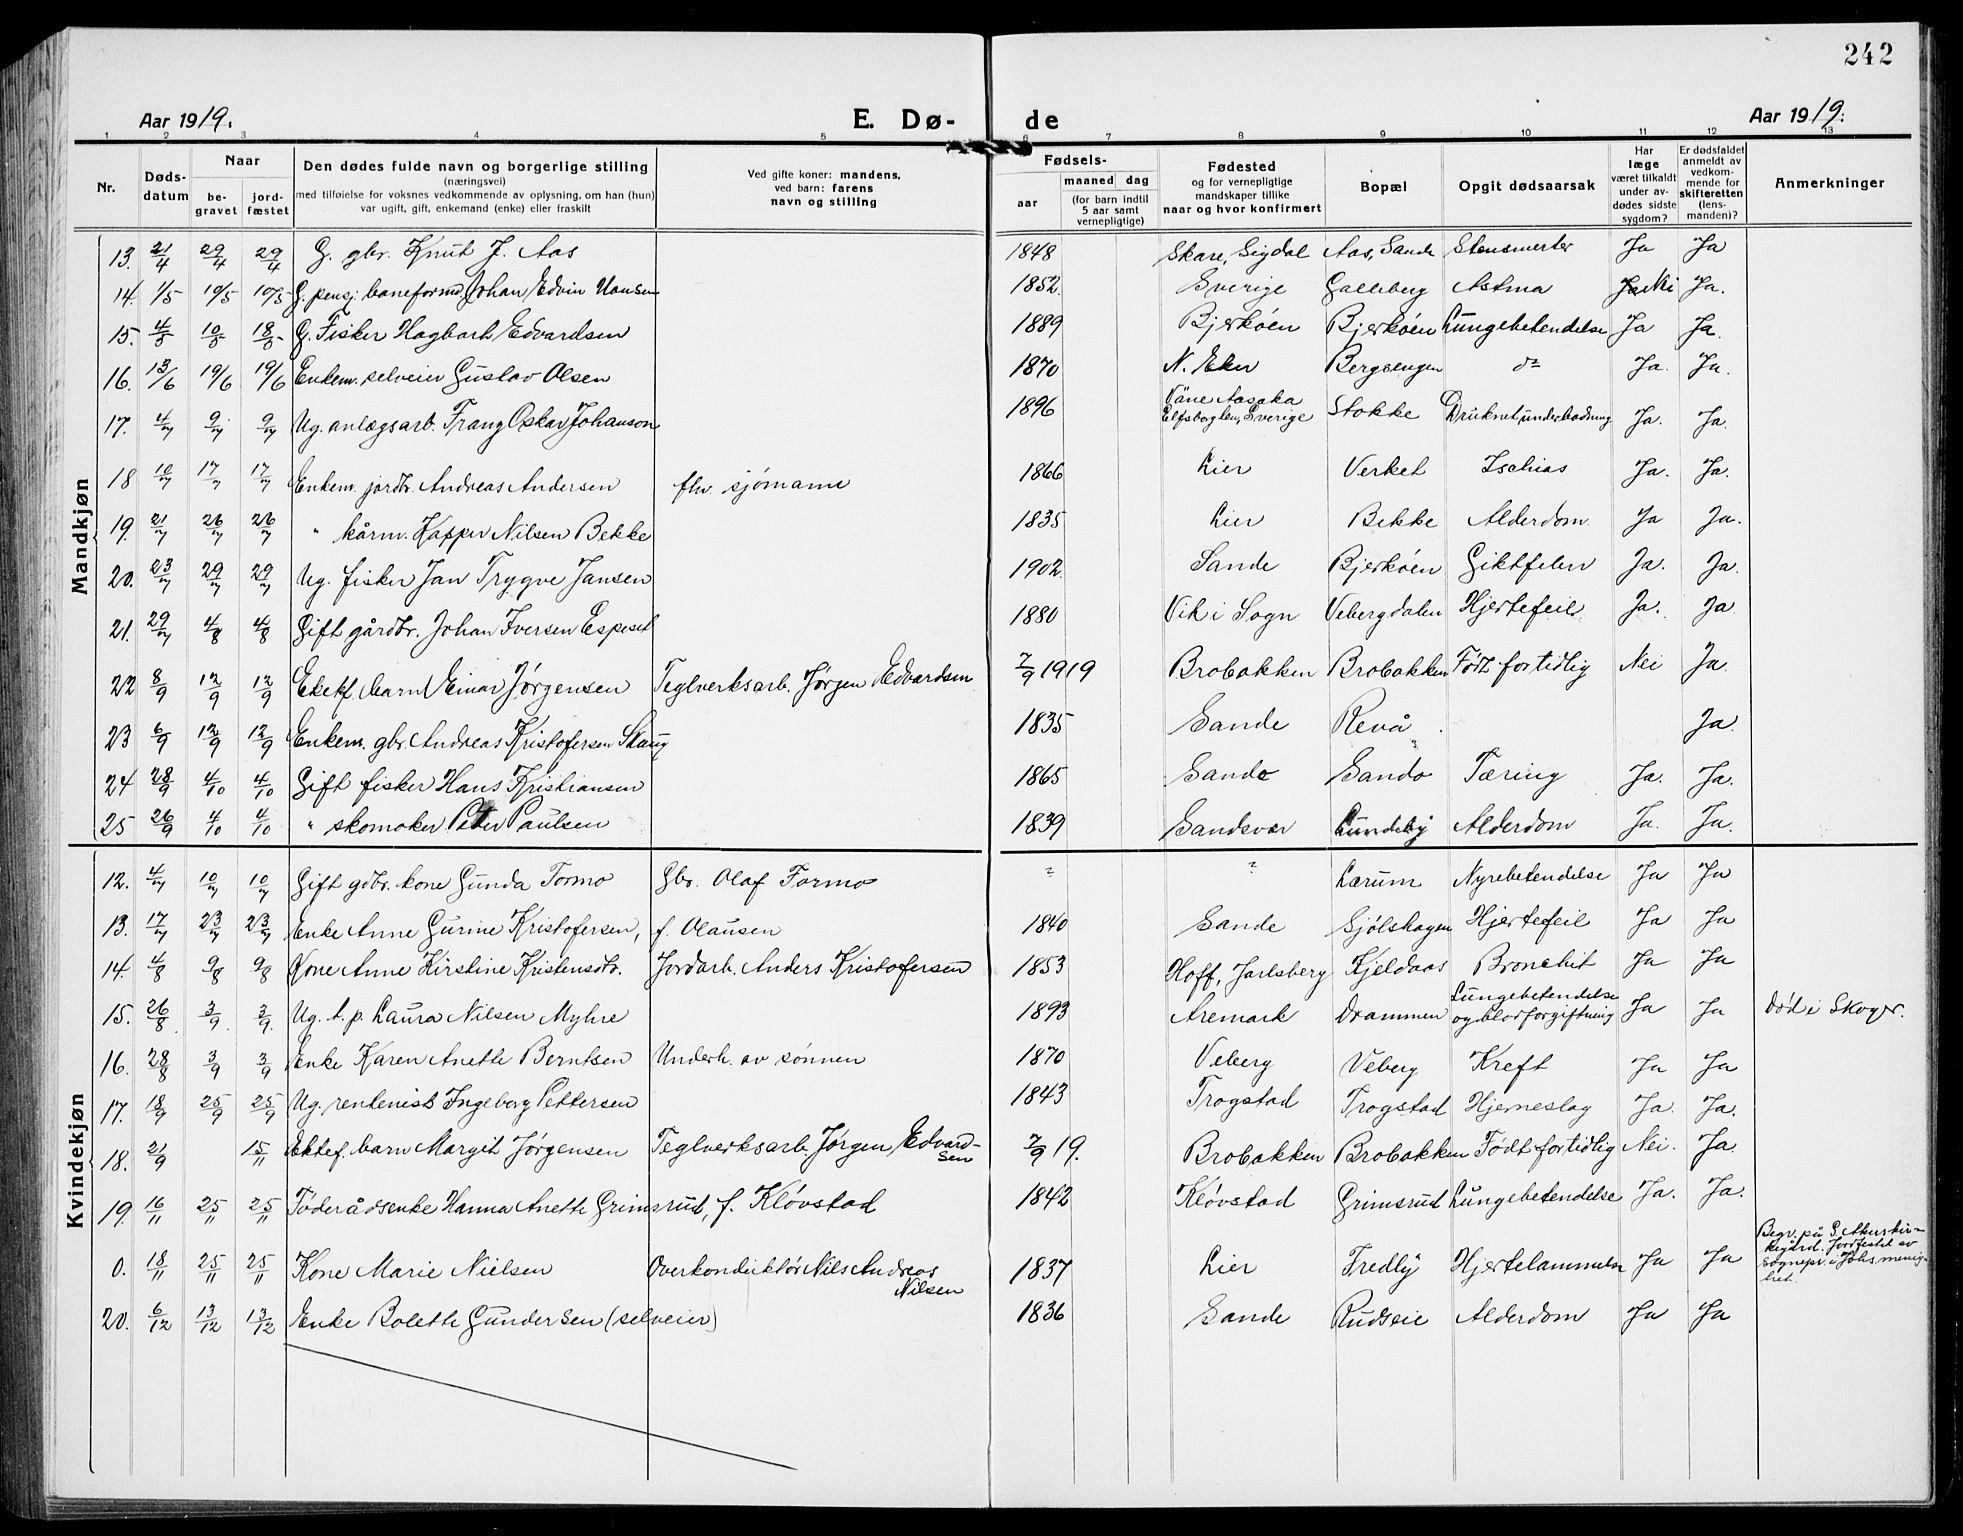 242
Aar 1919. E. Dø- de Aar 1919.
1 2 3 4 5 6 7 8 9 10 11 12 13
Nr. Døds-datum Naar be-gravet jord-fæstet Den dødes fulde navn og borgerlige stilling (næringsvei) med tilføielse for voksnes vedkommende av oplysning, om han (hun) var ugift, gift, enkemand (enke) eller fraskilt Ved gifte koner: mandens, ved barn: farens navn og stilling Fødsels- aar maaned dag (for barn indtil 5 aar samt vernepligtige) Fødested og for vernepligtige mandskaper tillike naar og hvor konfirmert Bopæl Opgit dødsaarsak Har læge været tilkaldt under av-dødes sidste sygdom? Er dødsfaldet anmeldt av vedkom-mende for skifteretten (lens-manden)? Anmerkninger
Mandkjøn
13. 21/4 29/4 29/4 G. gbr. Knut J. Aas 1848 Skare, Sigdal Aas, Sande Stensmerter Ja Ja
14. 1/5 10/5 10/5 G. pensj. baneformd. Johan Edvin Hansen 1852. Sverige Galleberg Astma Nei Ja.
15. 4/5 10/5 18/5 G. Fisker Hagbart Edvardsen 1889 Bjerköen Bjerköen Lungebetendelse Ja Ja.
16. 13/6 19/6 19/6 Enkem. selveier Gustav Olsen 1870 N. Eker Bergsengen do Ja. Ja.
17. 4/7 9/7 9/7 Ug. anlægsarb. Franz Oskar Johanson 1896 Väne Aasaka Elfsborg len, Sverige Stokke Druknet under badning Ja. Ja.
18 10/7 17/7 17/7 Enkem. jordbr. Andreas Andersen fhv. sjømann 1866 Lier Verket Ischias Ja. Ja.
19. 21/7 26/7 26/7 " kårm. Kasper Nilsen Bekke 1835 Lier Bekke Alderdom. Ja Ja.
20. 23/7 29/7 29/7 Ug. fisker Jan Trygve Jansen 1902. Sande Bjerköen Giktfeber Ja. Ja.
21. 29/7 4/8 4/8 Gift gårdbr. Johan Iversen Espeset 1880 Vik i Sogn Vebergdalen Hjertefeil. Ja. Ja
22 8/9 12/9 12/9 Ektef. barn Einar Jørgensen Teglverksarb. Jørgen Edvardsen 7/9 1919 Brobakken Brobakken Født for tidlig Nei Ja.
23 6/9 12/9 12/9 Enkem. gbr. Andreas Kristofersen Skaug 1835 Sande Revå Ja.
24 28/9 4/10 4/10 Gift fisker Hans Kristiansen 1865 Sande Sande Tæring Ja. Ja.
25 26/9 4/10 4/10 " skomaker Peter Paulsen 1839 Sandsvær Lundeby Alderdom Ja. Ja.
Kvindekjøn
12. 4/7 10/7 10/7 Gift gdbr. kone Gunda Formo Gbr. Olaf Formo ? ? Lærum Nyrebetendelse Ja Ja
13. 17/7 23/7 23/7 Enke Anne Gurine Kristofersen, f. Olausen 1840 Sande Sjølshagen Hjertefeil Ja Ja
14. 4/8 9/8 9/8 Kone Anne Kirstine Kristensdtr. Jordarb. Anders Kristofersen 1853 Hoff, Jarlsberg Kjeldaas Bronchit Ja Ja
15. 26/8 3/9 3/9. Ug. t.p. Laura Nilsen Myhre 1893 Aremark Drammen Lungebetendelse og blodforgiftning Ja Ja Død i Skoger.
16. 28/8 3/9 3/9 Enke Karen Anette Berntsen Underh. av sønnen 1870 Veberg Veberg Kreft Ja Ja
17. 18/9 25/9 25/9 Ug. rentenist Ingeborg Pettersen 1843 Trogstad Trogstad Hjerneslag Ja. Ja.
18. 21/9 15/11 Ektef. barn Margit Jørgensen Teglverksarb. Jørgen Edvard-sen 7/9 19. Brobakken Brobakken Født for tidlig Nei. Ja.
19. 16/11 25/11 25/11 Føderådsenke Hanna Anette Grimsrud, f. Kløvstad 1842 Kløvstad Grimsrud Lungebetendelse Ja. Ja.
0. 18/11 25/11 25/11 Kone Marie Nielsen Overkonduktør Nils Andreas Nilsen 1837 Lier Fredly Hjertelammelse Ja Ja Begr. på Akerskir-kegård. Jordfestet av sognepr. i Johs. menig-het.
20. 6/12 13/12 13/12 Enke Bolette Gundersen (selveier) 1836 Sande Rudseie Alderdom Ja Ja